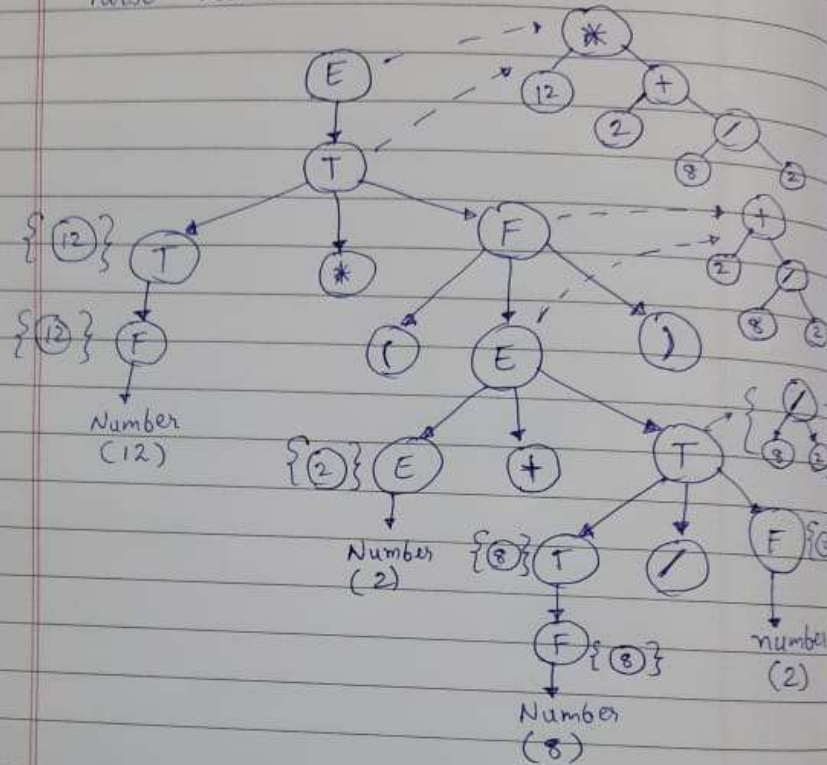 E * 
12 +
T 2 /
8 2
{ 12 } T * F +
2 /
{ 12 } F ( E ) 8 2
Number
(12)
{ 2 } E + T { /
8 2
Number
(2)
{ 8 } T / F {
F { 8 }
number
(2)
Number
(8)